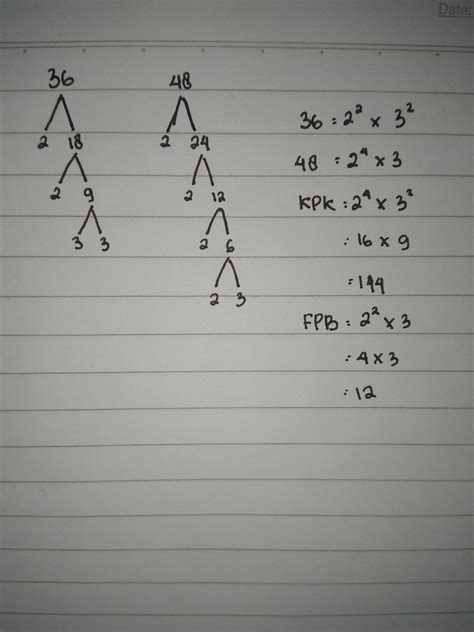 Date:
36 48
2 18 2 24
2 9 2 12
3 3 2 6
2 3
36 = 2² × 3²
48 = 2⁴ × 3
KPK : 2⁴ × 3²
: 16 × 9
: 144
FPB : 2² × 3
: 4 × 3
: 12